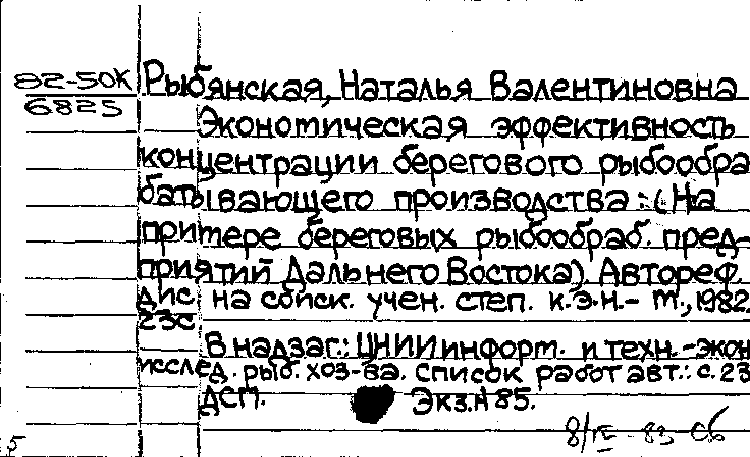 82-50К Рыбянская, Наталья Валентиновна
6825
Экономическая эффективность
концентрации берегового рыбообра
батывающего производства: (На
примере береговых рыбообраб. пред-
приятий Дальнего Востока). Автореф.
дис. на соиск. учен. степ. к.э.н.- М., 1982.
23с
В надзаг.: ЦНИИ информ. и техн.-экон
исслед. рыб. хоз-ва. Список работ авт.: с. 23
ДСП. Экз.N 85.
8/IV-83
5